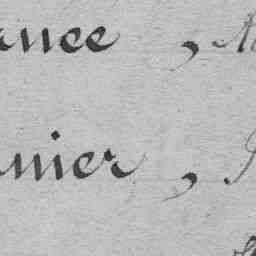 ance,
nier,